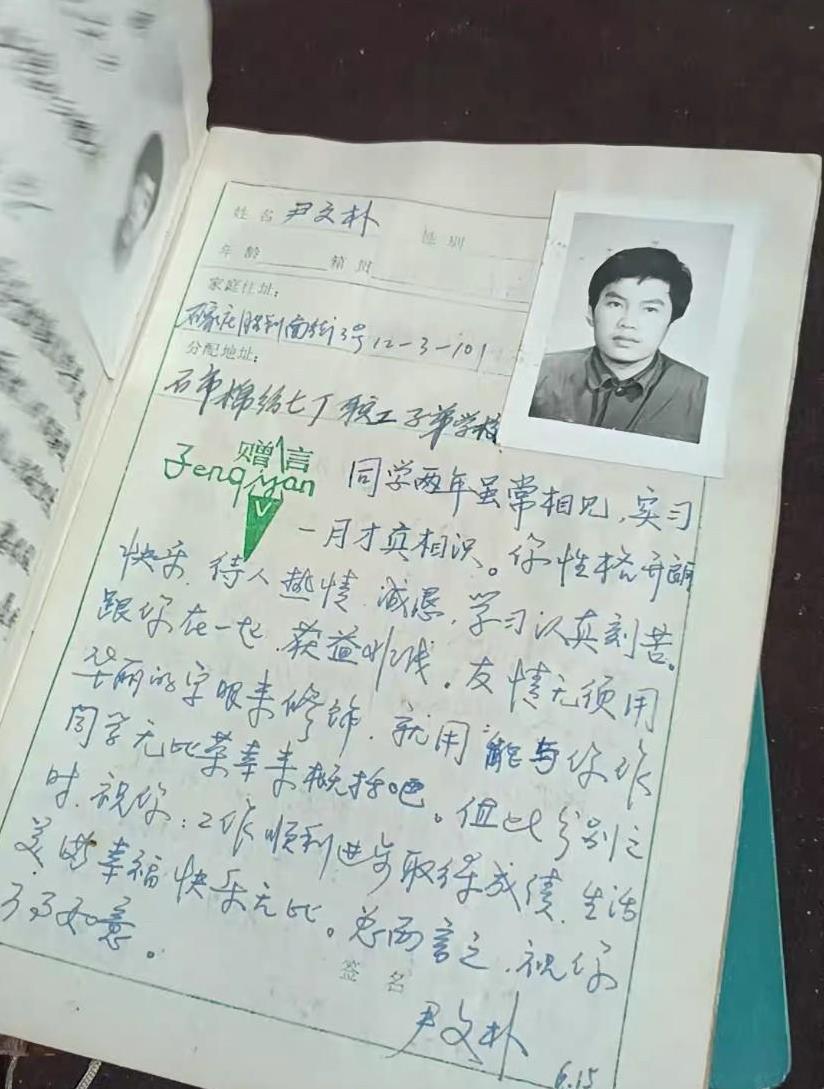 姓名 尹文朴 性别
年龄 箱
家庭住址:
石家庄胜利南街3号12-3-101
分配地址:
石市棉纺七厂职工子弟学校
赠言
Zengyan
同学两年虽常相见,实习
一月才真相识。你性格开朗
快乐,待人热情、诚恳,学习认真刻苦。
跟你在一起,获益非浅。友情无须用
华丽的字眼来修饰,就用"能与你作
同学无比荣幸来概括吧。值此分别之
时,祝你:工作顺利进步取得成绩,生活
美满幸福快乐无比。总而言之,祝你
万事如意。
签名
尹文朴
6.15